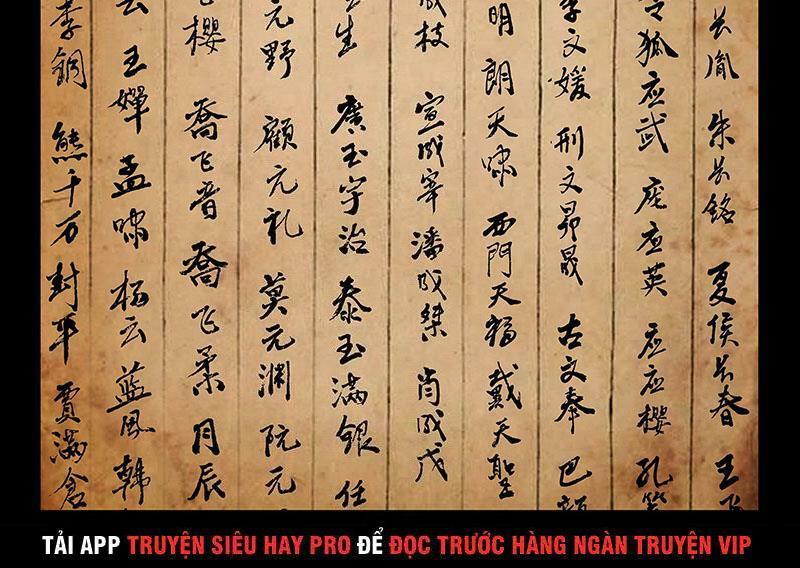 長胤 朱長銘 夏侯長春 王
令狐应武 庞应英 应应樱 孔
李文媛 刑文昴晟 古文奉 巴
明 朗天啸 西門天福 戴天聖
成枝 宣成宰 潘成桀 肖成戊
生 廣玉宇治 泰玉满银 任
元野 顧元礼 莫元渊 阮元
飞樱 喬飞音 喬飞柔 月辰
云 王嬋 孟啸 杨云 蓝风 韩
李銅 熊千万 封平 賈满倉
TẢI APP TRUYỆN SIÊU HAY PRO ĐỂ ĐỌC TRƯỚC HÀNG NGÀN TRUYỆN VIP